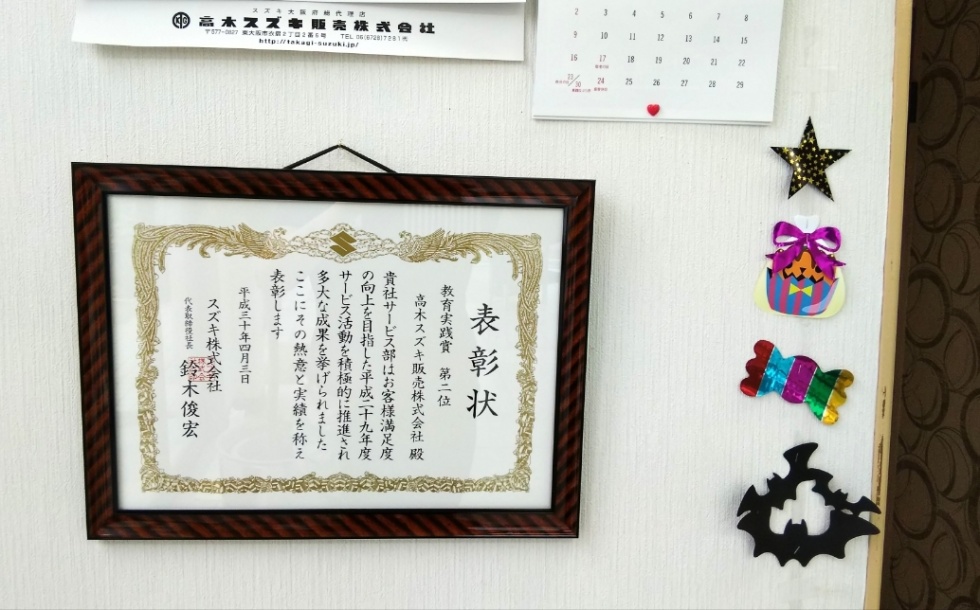 スズキ大阪府総代理店
高木スズキ販売株式会社
〒577-0827 東大阪市衣摺2丁目2番5号 TEL 06(6728)7281代
http://takagi-suzuki.jp/
2 3 4 5 6 7 8
9 10 11 12 13 14 15
16 17 18 19 20 21 22
23/30 24 25 26 27 28 29
表彰状
教育実践賞 第二位
高木スズキ販売株式会社 殿
貴社サービス部はお客様満足度
の向上を目指した平成二十九年度
サービス活動を積極的に推進され
多大な成果を挙げられました
ここにその熱意と実績を称え
表彰します
平成三十年四月三日
スズキ株式会社
代表取締役社長 鈴木俊宏